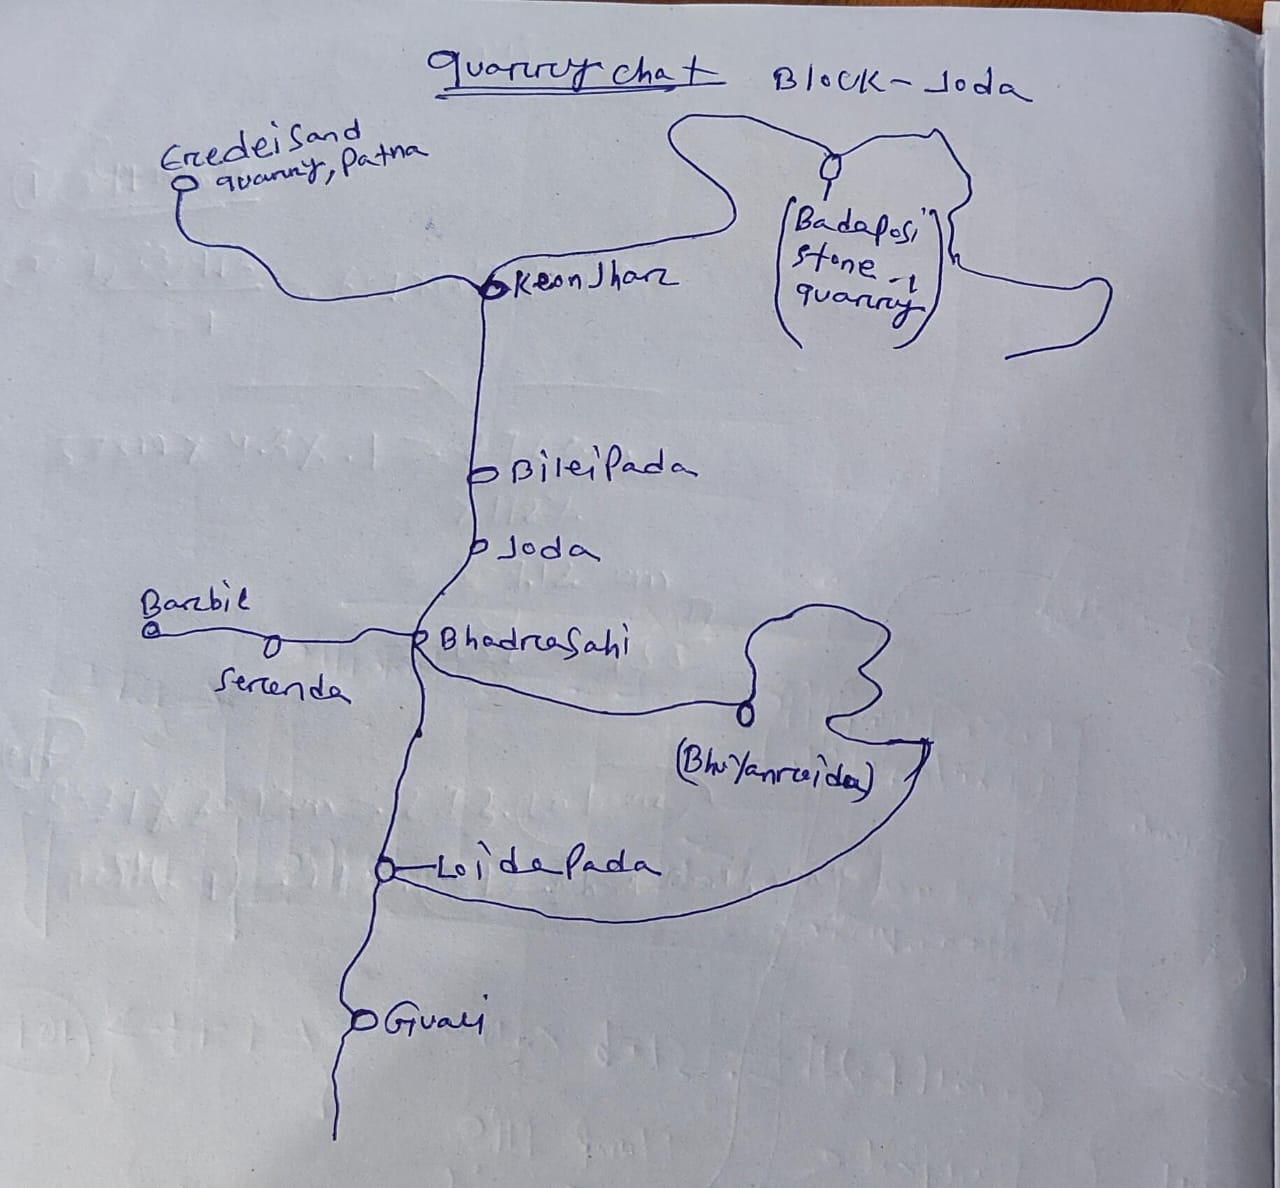 Quarry chat Block-Joda
Eredei Sand
quarry, Patna
(Badaposi
stone -1
quarry)
Keonjhar
Bileipada
Joda
Barbil
Bhadrasahi
Serenda
(Bhuyanroida)
Loidapada
Guali